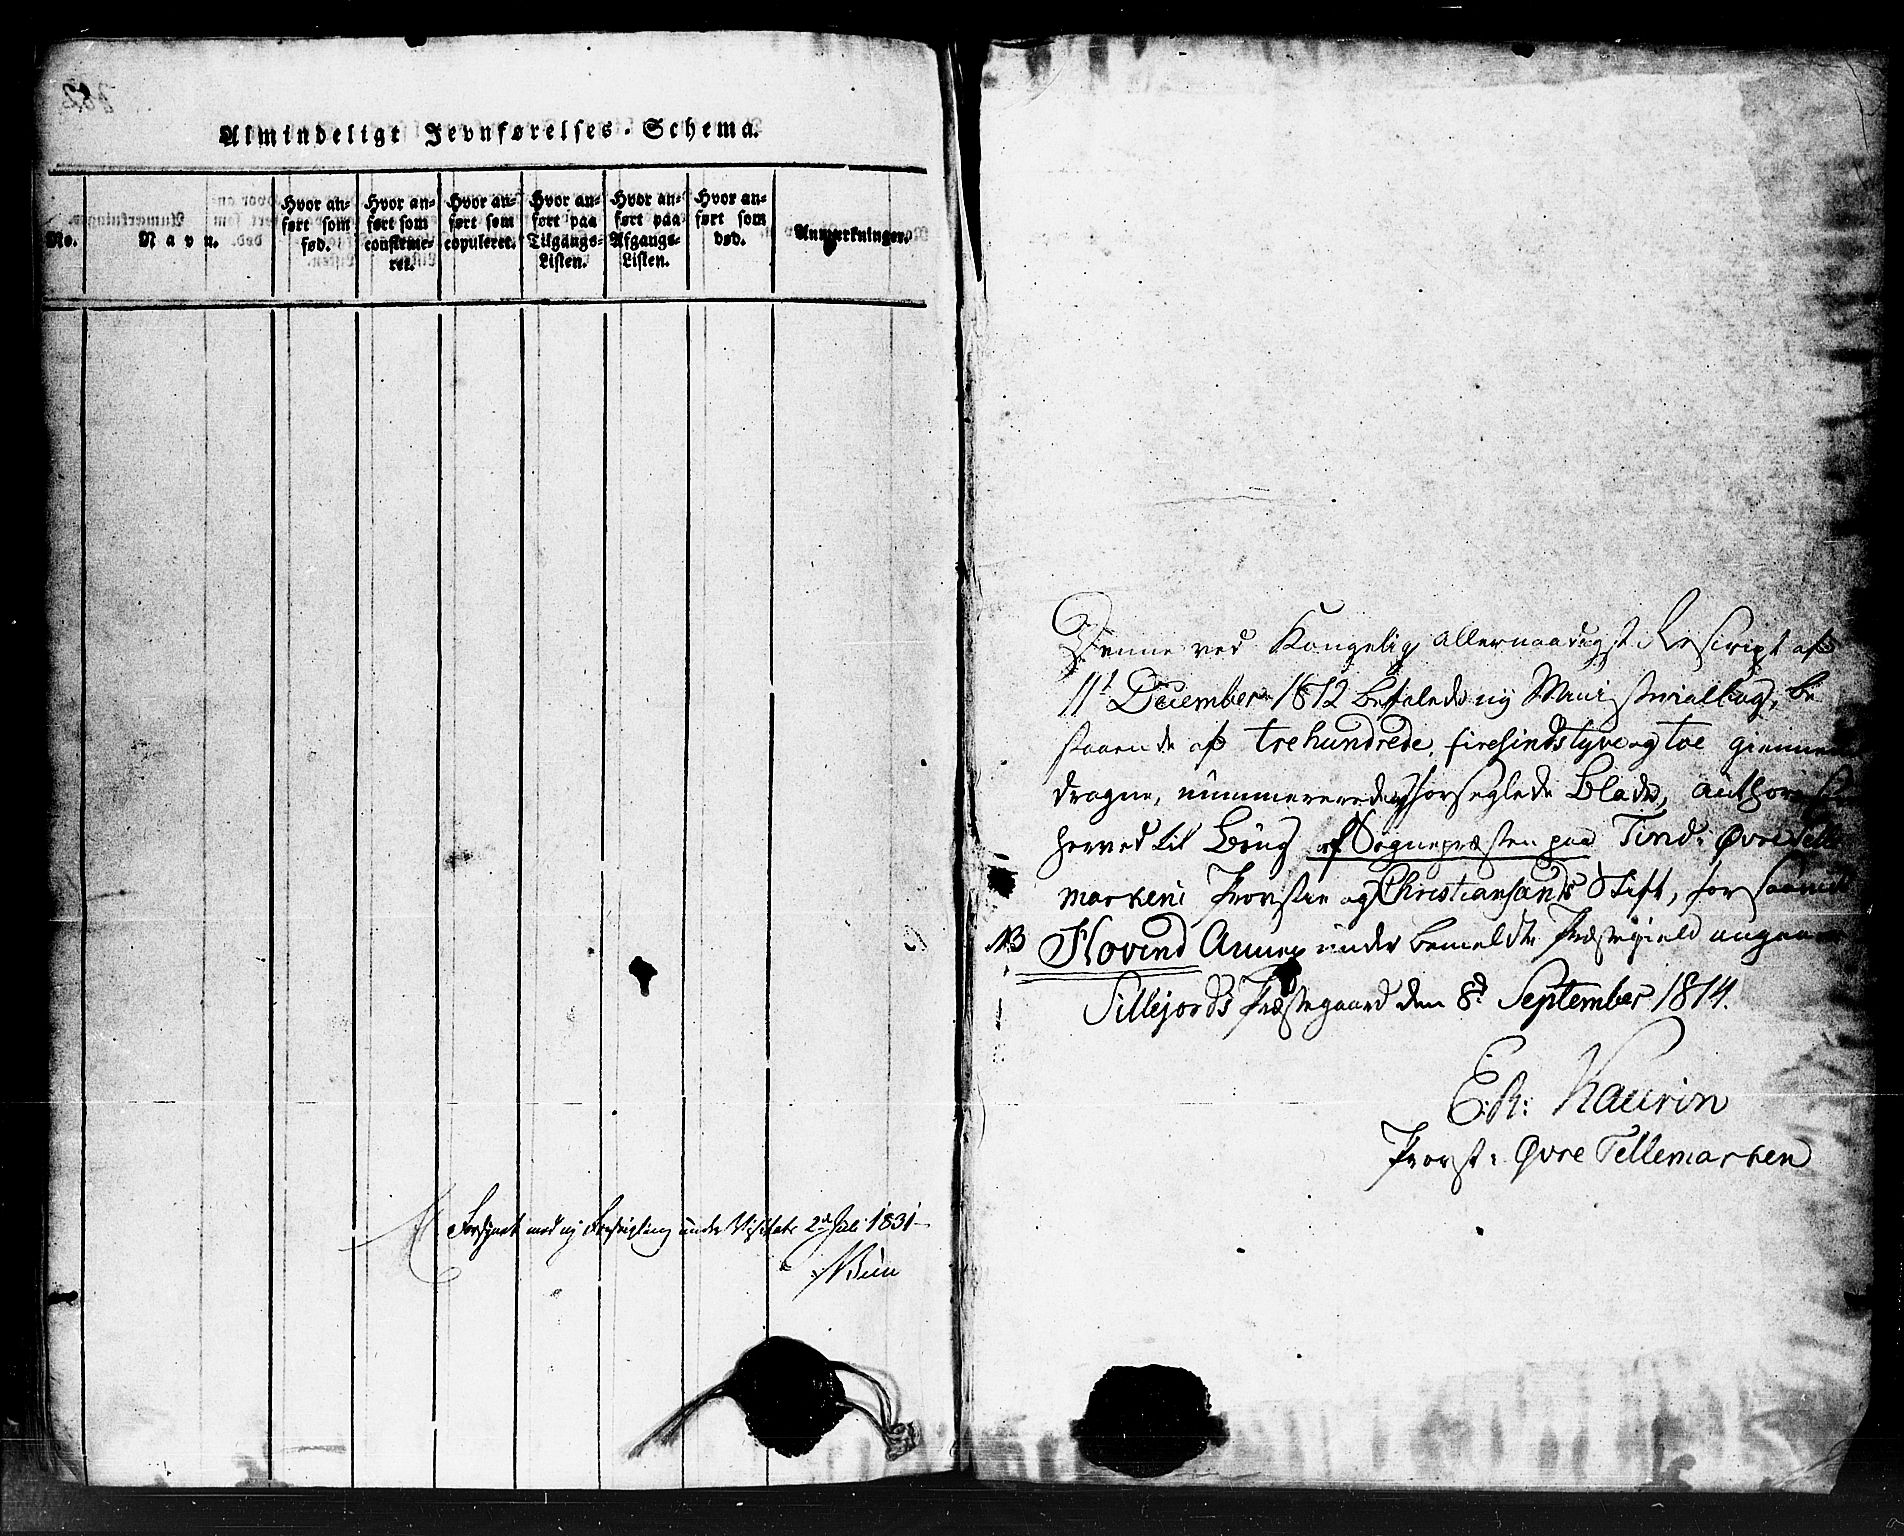 Almindeligt Jevnførelses-Schema.
No.
Navn.
Hvor an-
ført som
fød.
Hvor an-
ført som
confirme-
ret.
Hvor an-
ført som
copuleret.
Hvor an-
ført paa
Tilgangs-
Listen.
Hvor an-
ført paa
Afgangs-
Listen.
Hvor an-
ført som
død.
Anmærkninger.
Forsynet med ny Forsegling under Visitats 2d Juli 1831
Denne ved Kongelig allernaadigst Rescript af
11t December 1812 befalede ny Ministerialbog, be
staaende af trehundrede, firesindstyve og toe giennem
dragne, nummererede og forseglede Blade, authoriseres
herved til Brug af Sognepræsten paa Tind: Øvre Telle
markens Provstie og Christiansands Stift, for saavidt
NB Hovind Annex under bemeldte Præstegield angaaer
Sillejords Præstegaard den 8d September 1814.
E: R: Kaurin
Provst: Øvre Tellemarken